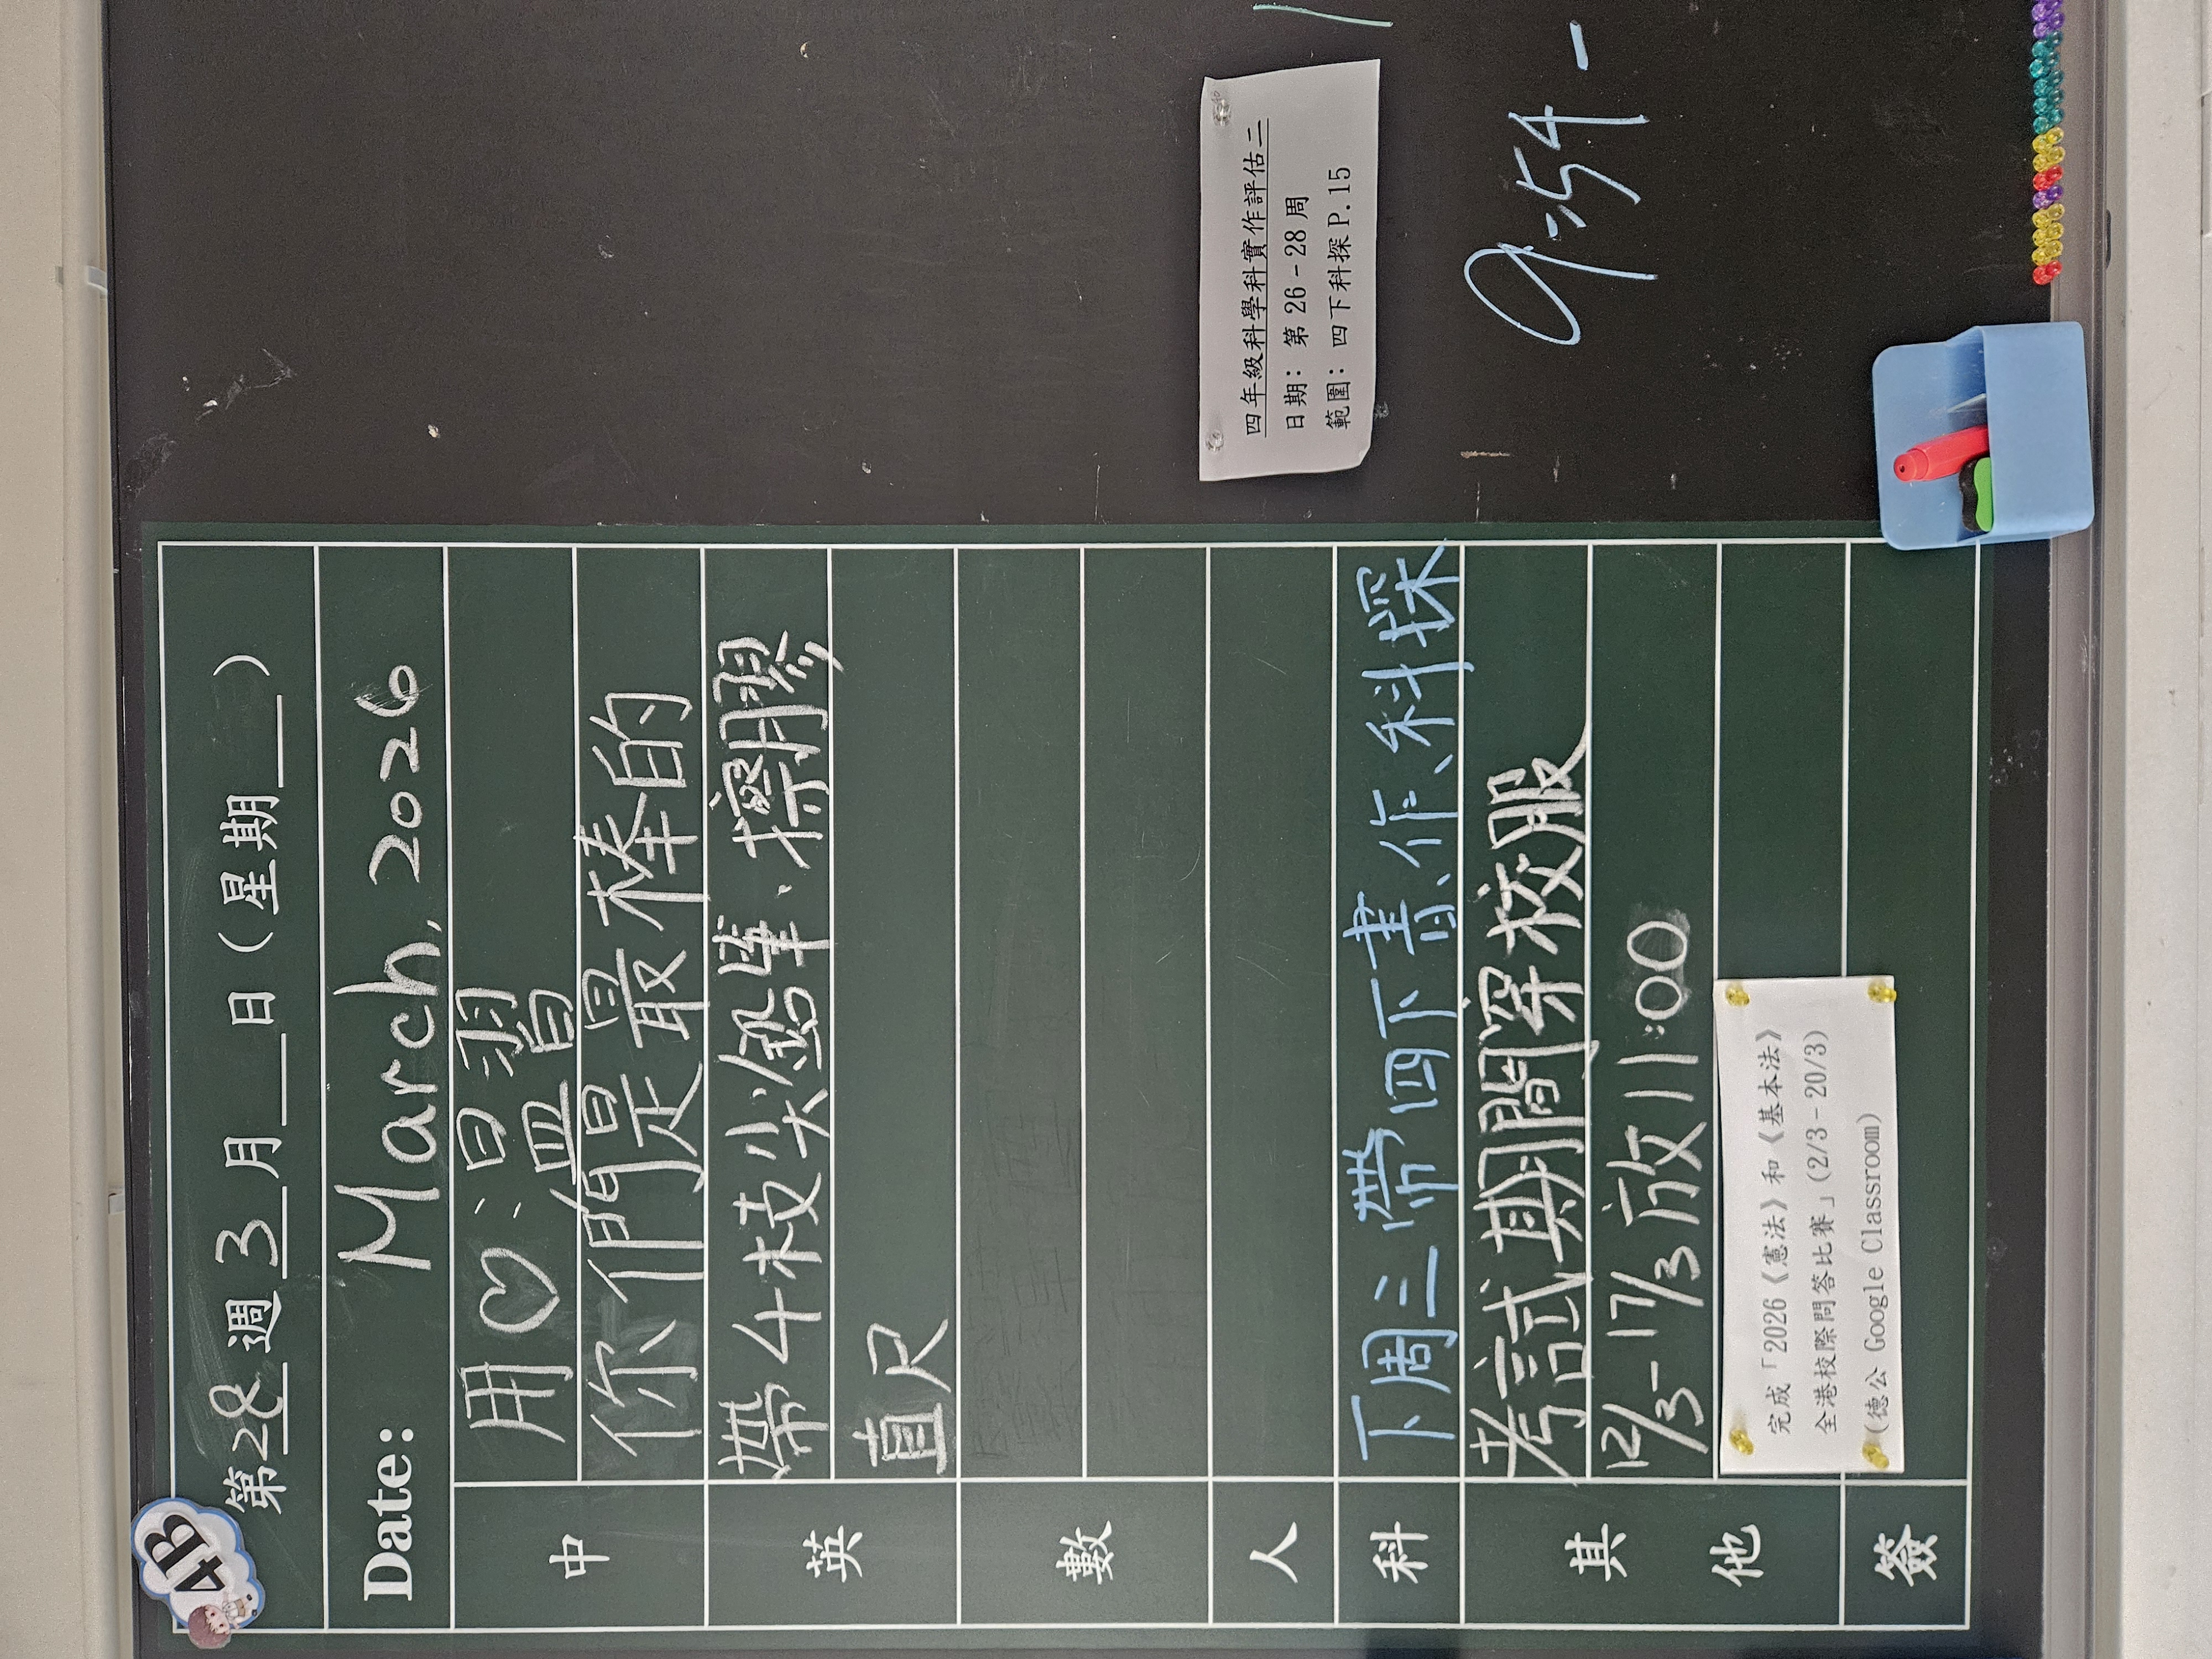 4B
第28週3月__日(星期__)
Date: March, 2026
中
用♡溫習
你們是最棒的
英
帶4枝尖鉛筆、擦膠
直尺
數
人
科
下周三帶四下書、作、科探
其他
考試期間穿校服
12/3-17/3放11:00
完成「2026《憲法》和《基本法》
全港校際問答比賽」(2/3-20/3)
(德公 Google Classroom)
簽
四年級科學科實作評估二
日期: 第26-28周
範圍: 四下科探P.15
9:54-